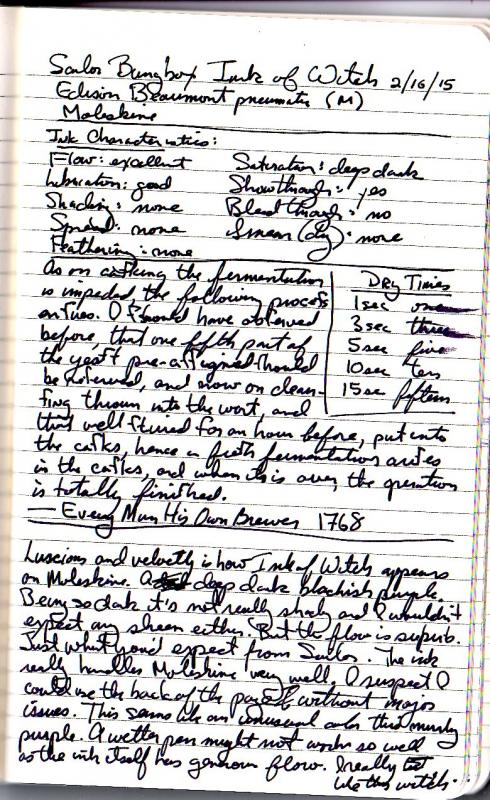 Sailor Bungbox Ink of Witch 2/16/15
Edison Beaumont pneumatic (M)
Moleskine
Ink Characteristics:
Flow: excellent Saturation: deep dark
Lubrication: good Showthrough: yes
Shading: none Bleedthrough: no
Spread: none Smear (dry): none
Feathering: none
As on casking the fermentation
is impeded, the following process
ensues. I should have observed
before, that one fifth part of
the yeast pre-assigned should
be reserved, and now on clean-
sing thrown into the wort, and
that well stirred for an hour before, put into
the casks, hence a fresh fermentation arises
in the casks, and when this is over, the operation
is totally finished.
— Every Man His Own Brewer 1768
Dry Times
1 sec one
3 sec three
5 sec five
10 sec ten
15 sec fifteen
Luscious and velvetly is how Ink of Witch appears
on Moleskine. A deep dark blackish purple.
Being so dark it's not really shady and I wouldn't
expect any sheen either. But the flow is superb.
Just what you'd expect from Sailor. The ink
really handles Moleskine very well. I suspect I
could use the back of the page without major
issues. This seems like an unusual color this murky
purple. A wetter pen might not work so well
as the ink itself has generous flow. I really
like this witch.